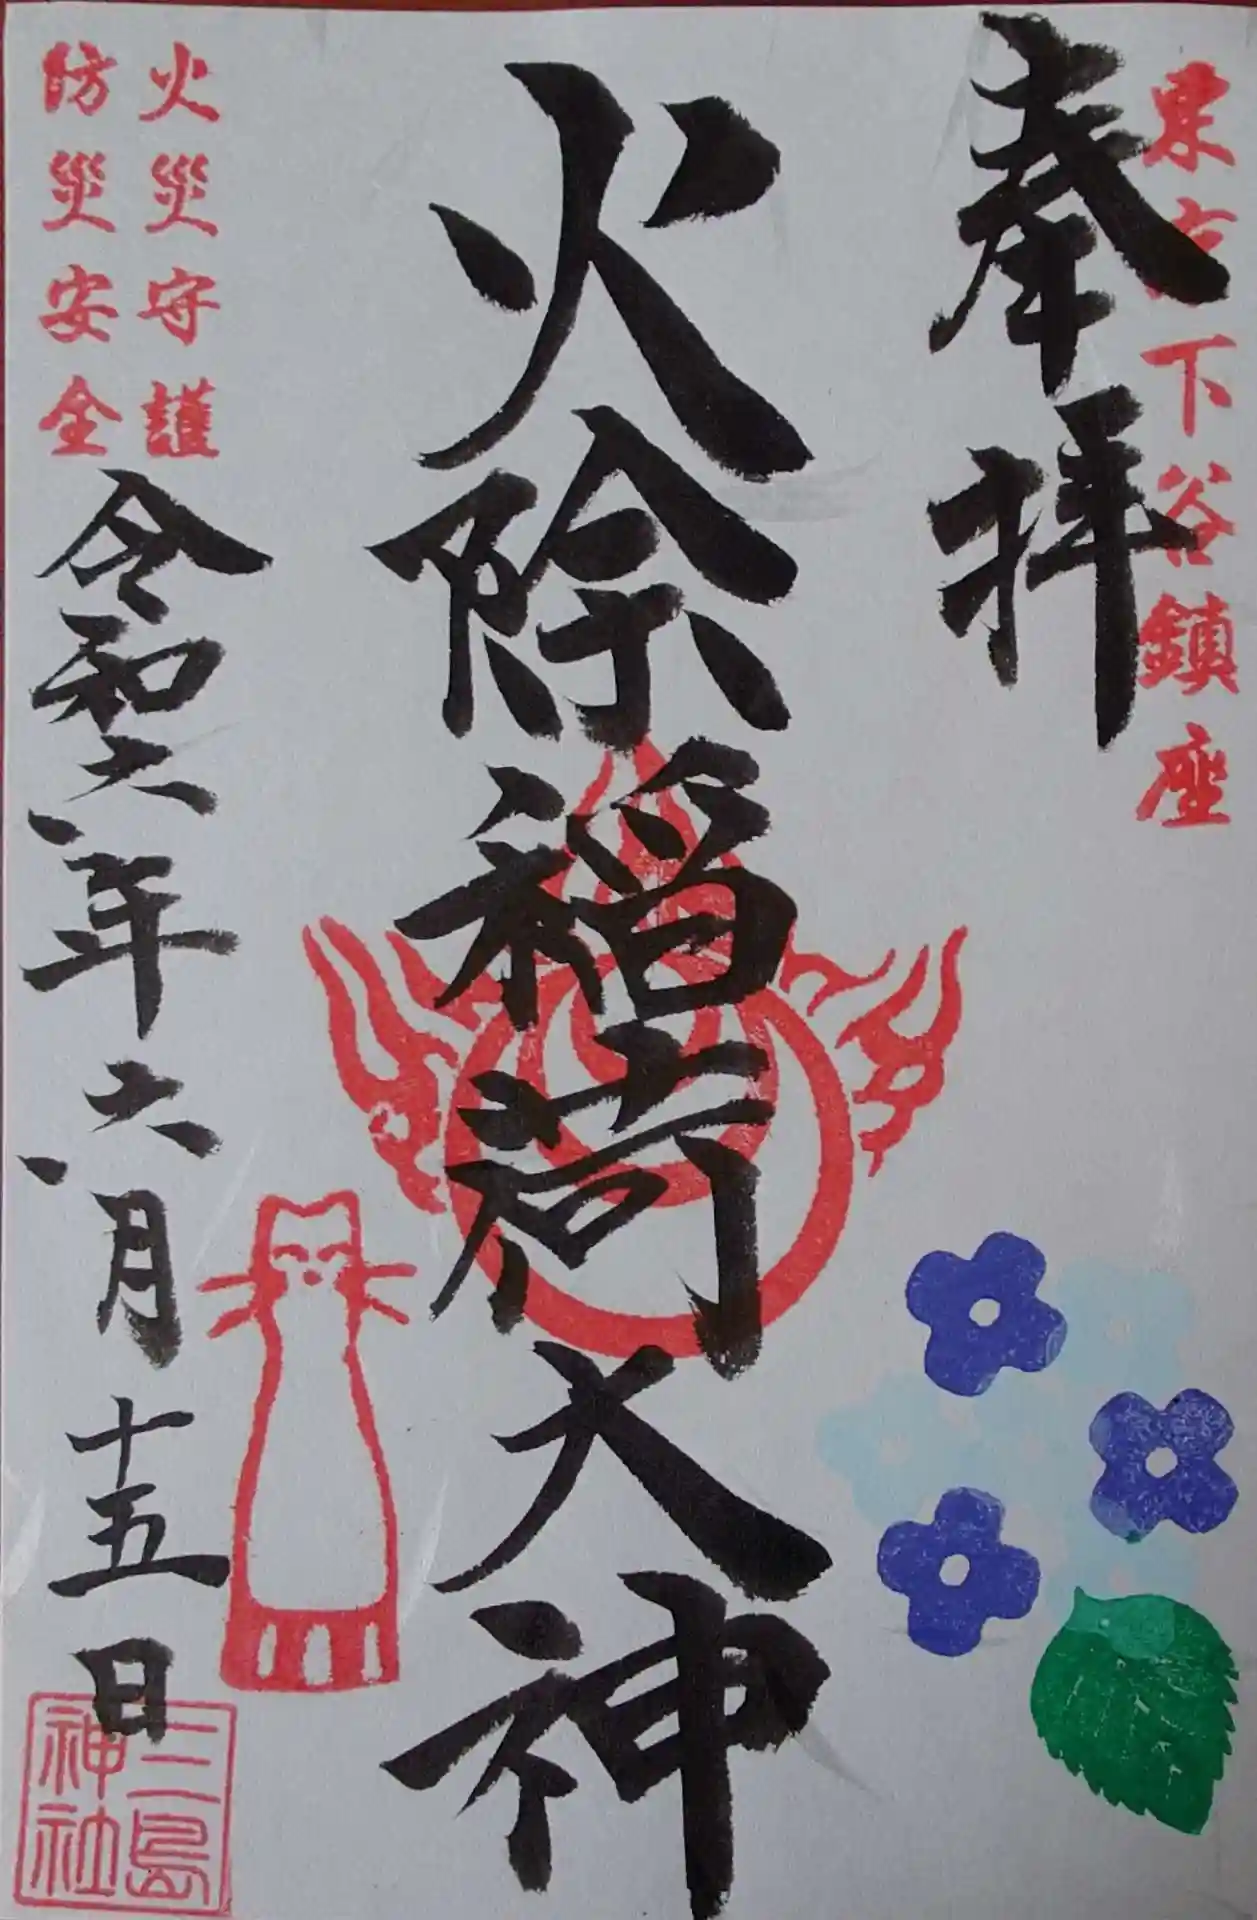 東京下谷鎮座
奉拝
火除稲荷大神
火災守護
防災安全
令和六年六月十五日
三島
神社